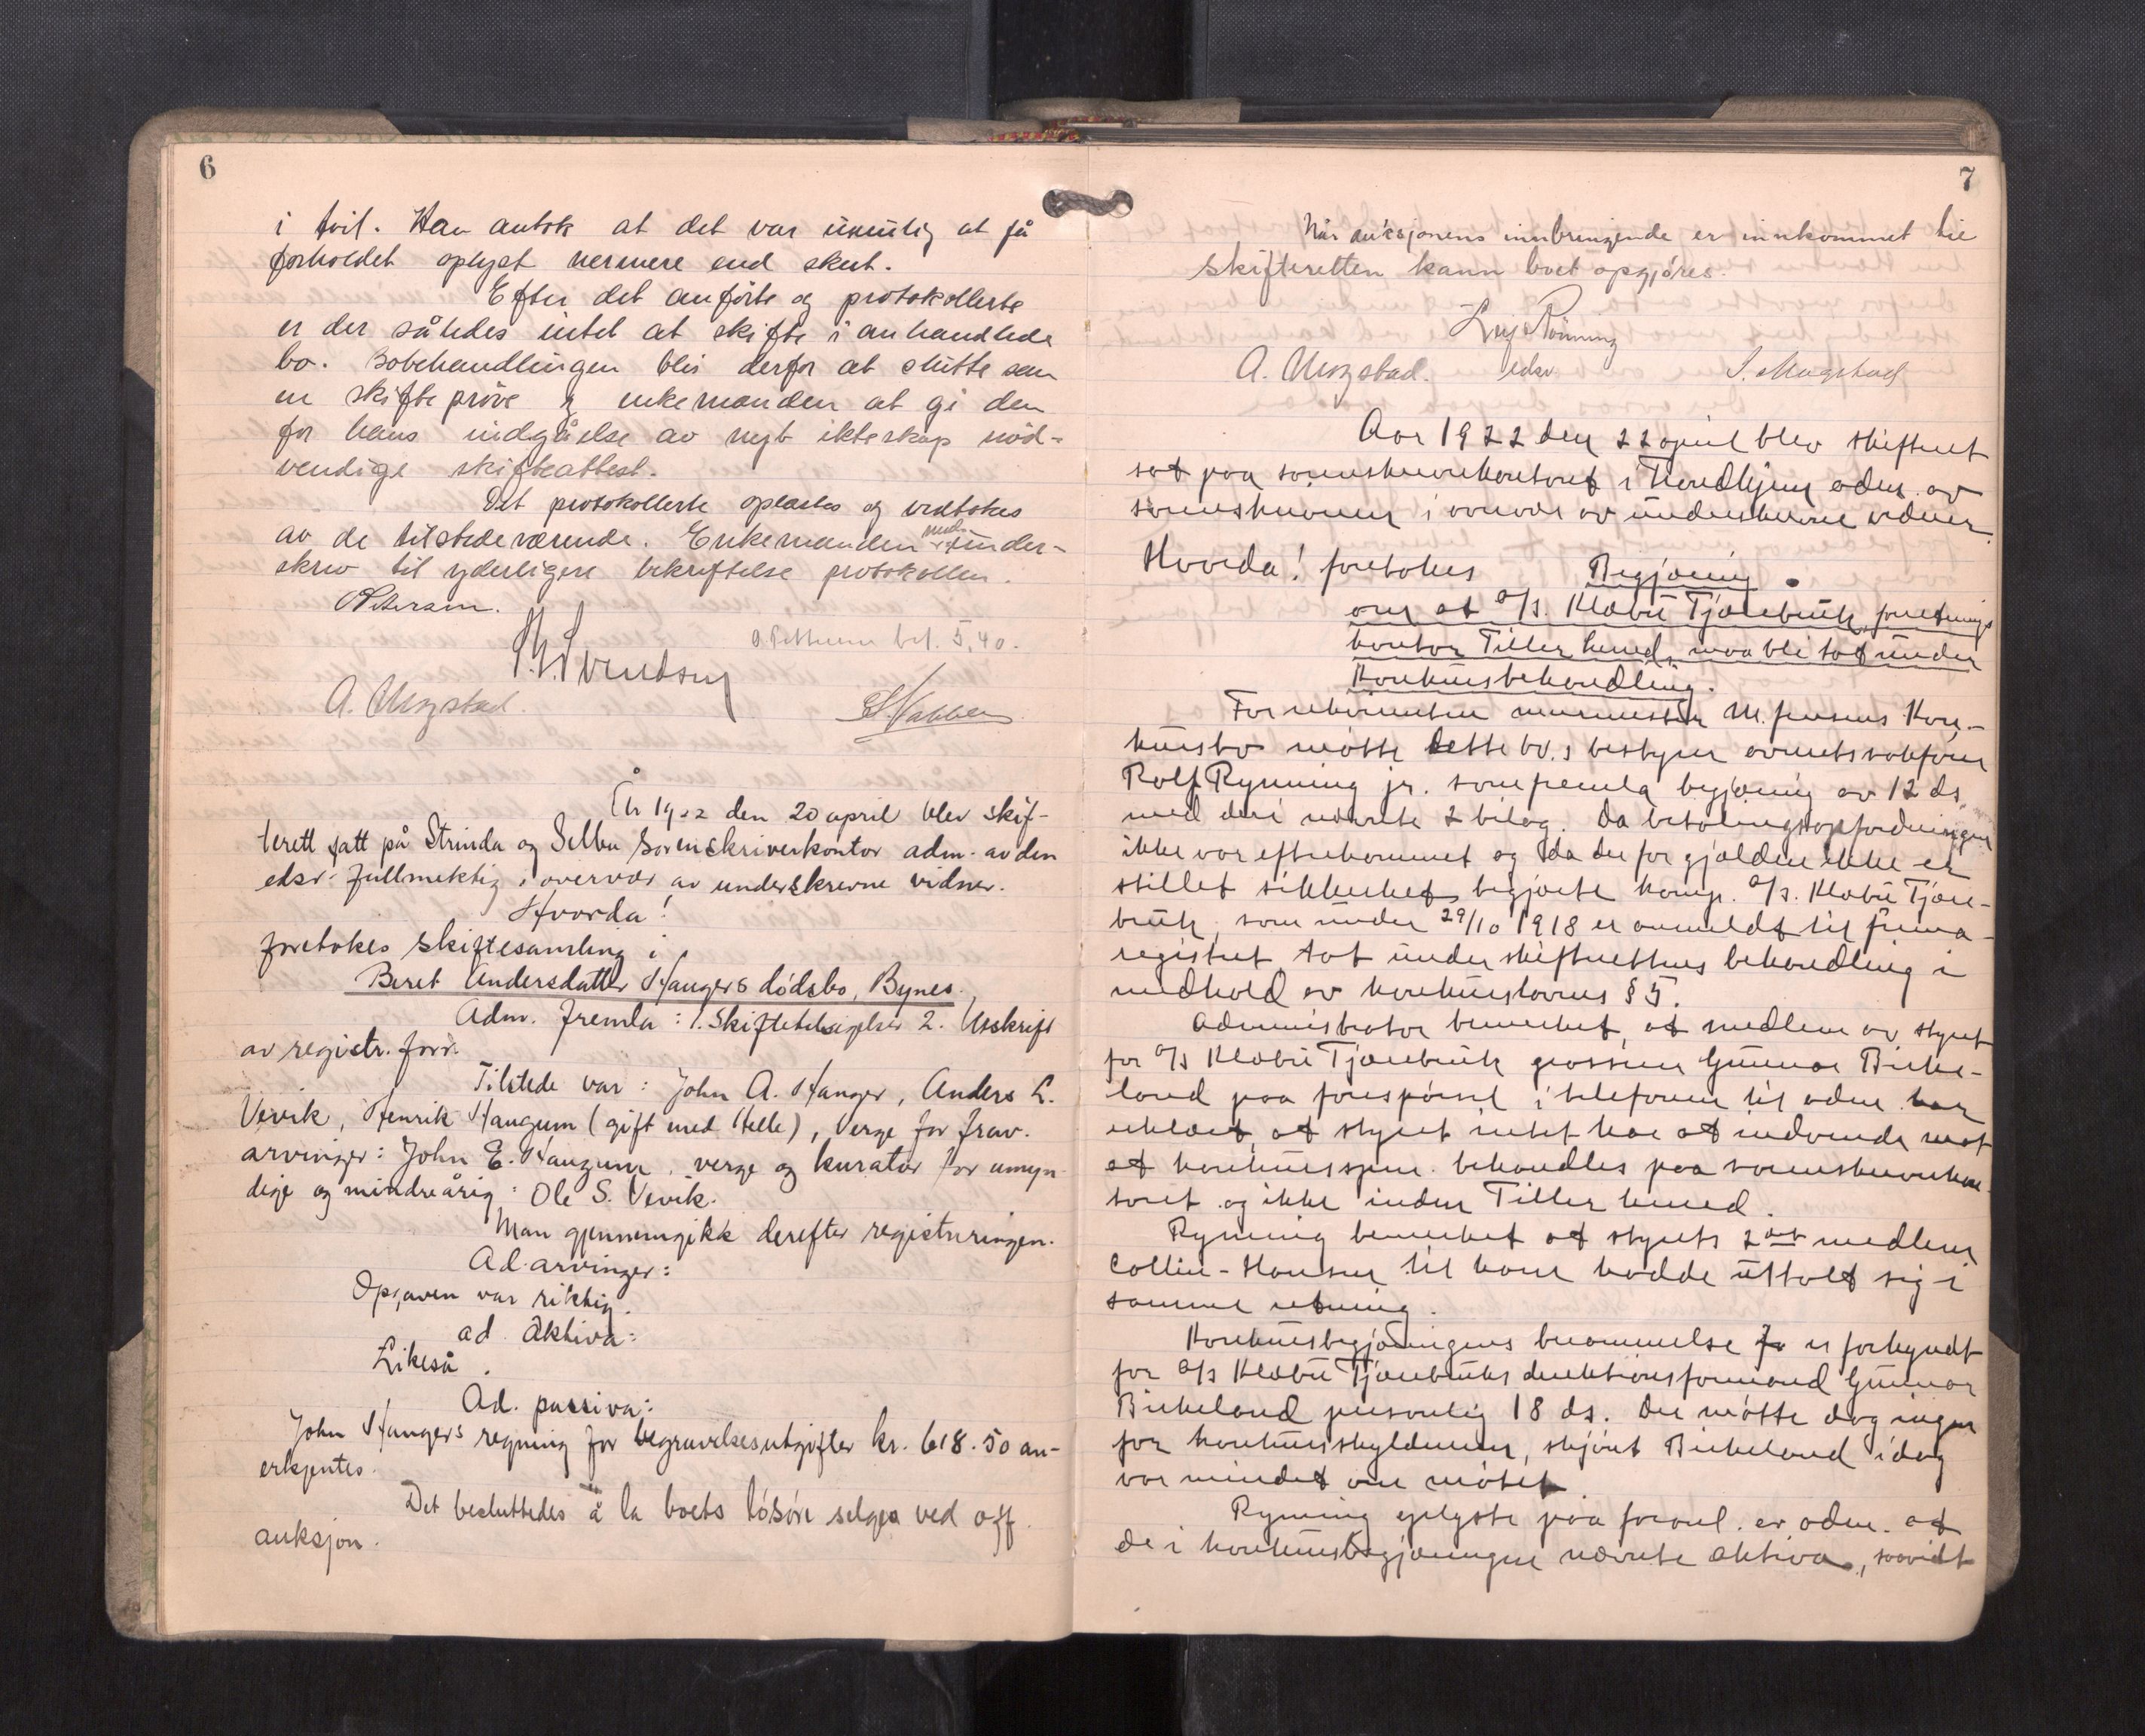 6
i tvil. Han antok at det var umulig at få
forholdet oplyst nermere end skeet.
Efter det anförte og protokollerte
er der således intet at skifte i anhandlede
bo. Bobehandlingen blir derfor at slutte som
en skiftepröve og enkemanden at gi den
for hans indgåelse av nyt ekteskap nöd-
vendige skifteattest.
Det protokollerte oplæstes og vedtokes
av de tilstedeværende. Enkemanden med under-
skrev til yderligere bekræftelse protokollen.
O Petersen.
O. Pettersen bet. 5,40.
Svendsen
A. Ugstad.
År 1922 den 20 april blev skif-
terett satt på Strinda og Selbu Sorenskriverkontor adm. av den
edsv. fullmektig i overvær av underskrevne vidner.
Hvorda!
foretokes skiftesamling i
Beret Andersdatter Haugers dódsbo, Bynes.
Adm. fremla: 1. Skiftetilsigelser 2. Utskrift
av registr. forr.
Tilstede var: John A. Hauger, Anders L.
Vevik, Henrik Haugum (gift med Helle), Verge for frav.
arvinger: John E. Haugum, verge og kurator for umyn-
dige og mindreårig: Ole S. Vevik.
Man gjennemgikk derefter registreringen.
Ad. arvinger:
Opgaven var riktig.
ad. Aktiva:
Likeså.
Ad. passiva:
John Haugers regning for begravelsesutgifter kr. 618.50 an-
erkjentes.
Det besluttedes å la boets lósóre selges ved off.
auksjon.
7
Når auksjonens innbringende er innkommet til
skifteretten kann boet opgjóres.
Leif Rönning
A. Ugstad. edsv. S. Mogstad
Aar 1922 den 22 april blev skifteret
sat paa sorenskriverkontoret i Trondhjem adm. av
sorenskriveren i overvær av underskrevne vidner
Hvorda! foretokes Begjæring
om at A/S. Klæbu Tjærebruk, forretnings
kontor Tiller herred, maa bli tat under
Konkursbehandling.
For rekvirenten murmester M. Jensens Kon-
kursbo mötte dette bo.s bestyrer overretssakförer
Rolf Rynning jr. som fremla begjæring av 12 ds.
med deri nævnte 2 bilag. Da betalingsopfordringen
ikke var efterkommet og da der for gjælden ikke er
stillet sikkerhet, begjærte komp. A/S. Klæbu Tjære-
bruk, som under 29/10 1918 er anmeldt til firma-
registret tat under skifterettens behandling i
medhold av konkurslovens § 5.
Administrator bemerket, at medlem av styret
for A/S Klæbu Tjærebruk grosserer Gunnar Birke-
land paa forespörsel i telefonen til adm. har
erklært, at styret intet har at indvende mot
at konkursspm. behandles paa sorenskriverkon-
toret og ikke inden Tiller herred.
Rynning bemerket at styrets 2det medlem
Collin-Hansen til ham hadde uttalt sig i
samme retning.
Konkursbegjæringens berammelse er forkyndt
for A/S Klæbu Tjærebruks direktionsformand Gunnar
Birkeland personlig 18 ds. Der mötte dog ingen
for konkursskyldneren, skjönt Birkeland idag
var mindet om mötet.
Rynning oplyste paa foranl. av adm. at
de i konkursbegjæringen nævnte aktiva, saavidt